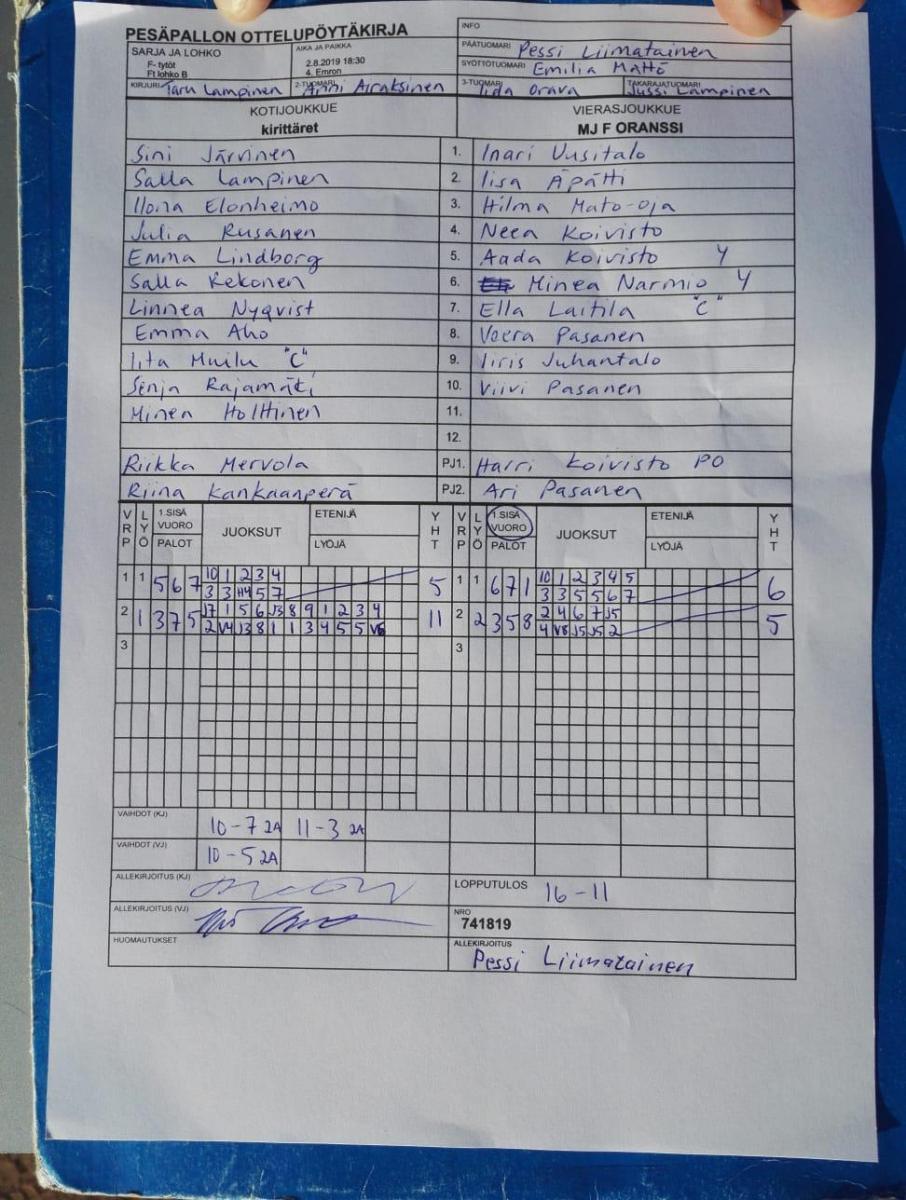 PESÄPALLON OTTELUPÖYTÄKIRJA
INFO
SARJA JA LOHKO
F- tytöt
Ft lohko B
AIKA JA PAIKKA
2.8.2019 18:30
4. Emron
PÄÄTUOMARI Pessi Liimatainen
SYÖTTÖTUOMARI Emilia Mattö
KIRJURI Taru Lampinen
2-TUOMARI Anni Airaksinen
3-TUOMARI Iida Orava
TAKARAJATUOMARI Jussi Lampinen
KOTIJOUKKUE
kirittäret
VIERASJOUKKUE
MJ F ORANSSI
Sini Järvinen 1. Inari Uusitalo
Salla Lampinen 2. Iisa Äpätti
Ilona Elonheimo 3. Hilma Mato-oja
Julia Rusanen 4. Neea Koivisto
Emma Lindborg 5. Aada Koivisto Y
Salla Kekonen 6. Minea Narmio Y
Linnea Nyqvist 7. Ella Laitila "C"
Emma Aho 8. Veera Pasanen
Iita Muilu "C" 9. Iiris Juhantalo
Senja Rajamäki 10. Viivi Pasanen
Minea Holttinen 11.
12.
Riikka Mervola PJ1. Harri Koivisto PO
Riina Kankaanperä PJ2. Ari Pasanen
VRP LYÖ 1.SISÄ VUORO PALOT JUOKSUT ETENIJÄ LYÖJÄ YHT VRP LYÖ 1.SISÄ VUORO PALOT JUOKSUT ETENIJÄ LYÖJÄ YHT
1 1 5 6 7 10 1 2 3 4 5 1 1 6 7 1 10 1 2 3 4 5 6
3 3 H4 5 7 3 3 5 5 6 7
2 1 3 7 5 17 1 5 6 J3 8 9 1 2 3 4 11 2 2 3 5 8 2 4 6 7 J5 5
2 V4 J3 8 1 1 3 4 5 5 V6 4 V8 J5 J5 2
3 3
VAIHDOT (KJ) 10-7 2A 11-3 2A
VAIHDOT (VJ) 10-5 2A
ALLEKIRJOITUS (KJ)
LOPPUTULOS 16-11
ALLEKIRJOITUS (VJ)
NRO
741819
HUOMAUTUKSET
ALLEKIRJOITUS
Pessi Liimatainen